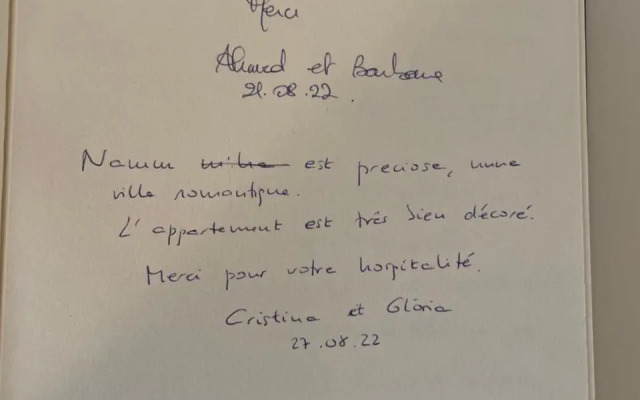 Merci
Ahmed et Barbara
21.08.22.
Namur est preciose, unne
ville romantique.
L'appartement est très bien décoré.
Merci pour votre hospitalité.
Cristina et Glòria
27.08.22